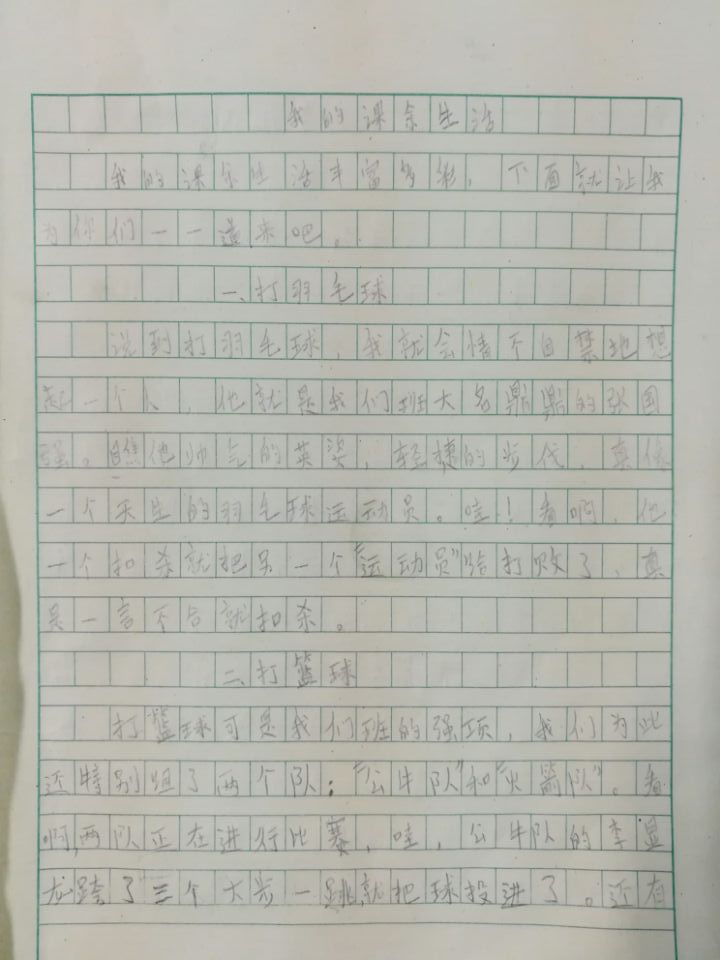 我的课余生活
我的课余生活丰富多彩。下面就让我
为你们一一道来吧。
一、打羽毛球
说到打羽毛球，我就会情不自禁地想
起一个人，他就是我们班大名鼎鼎的张国
强。瞧他帅气的英姿，轻捷的步代，真像
一个天生的羽毛球运动员。哇！看啊，他
一个扣杀就把另一个“运动员”给打败了，真
是一言不合就扣杀。
二、打篮球
打篮球可是我们班的强项，我们为此
还特别组了两个队：“公牛队”和“火箭队”。看
啊，两队正在进行比赛，哇，公牛队的李显
龙跨了三个大步一跳就把球投进了。还有